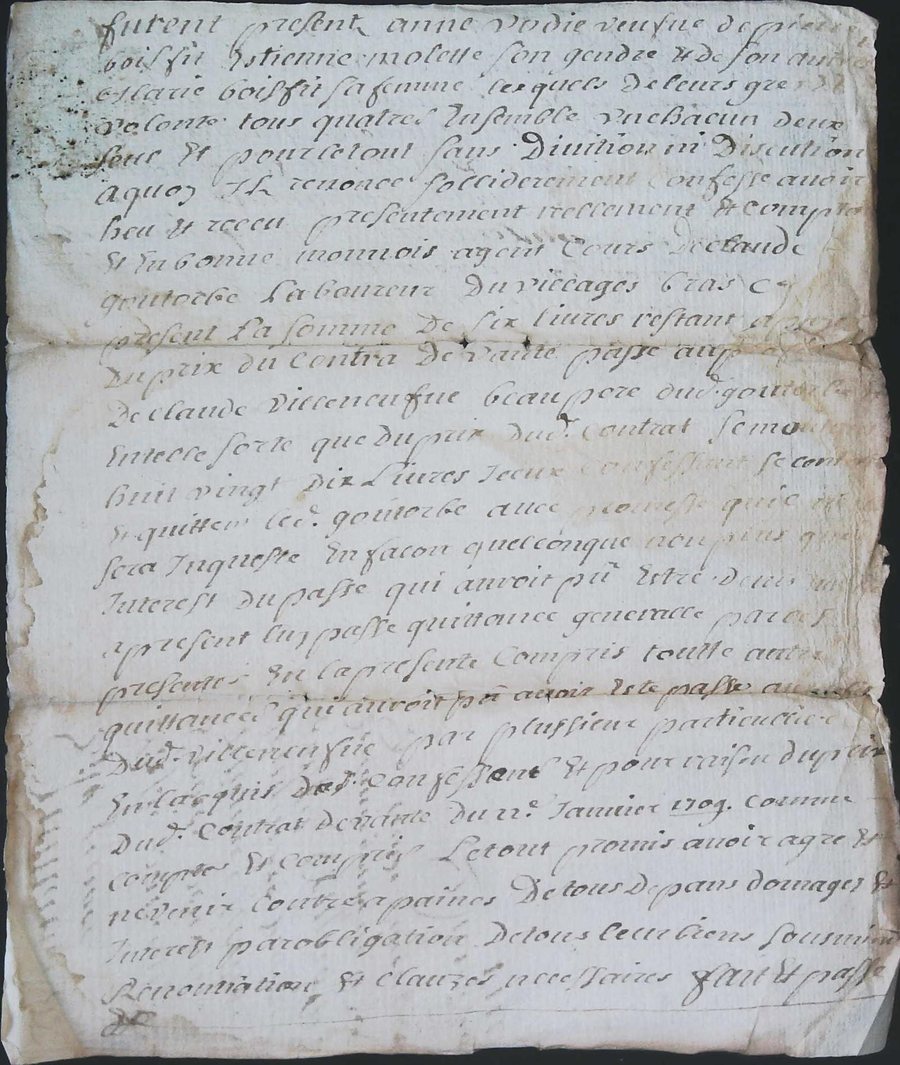 furent presentz anne vodie veufue de pierre
boissit Estienne molette son gendre Et de son autre
Marie boissit sa femme lesquels de leurs gre
volonte tous quatres Ensemble vnchacun deux
seul Et pourletout sans Division ni Discution
aquoy Ils renonce solliderement Confesse auoir
heu Et receu presentement reellement Et compta
Et Enbonne monnois agent Cours De claude
goutorbe Laboureur Du villages bras Cy
present La somme De six liures restant a
Du prix du Contra De vante passe aup
De claude villeneufue beaupere dud. goutorbe
Entelle sorte que du prix Dud. Contrat se
huit vingt Dix Liures Iceux Confessant se
Et quitter led. goutorbe auec promesse quil
sera Inqueste En facon quelconque non plus que
Interest Du passe qui auroit pû Estre Deus
apresent luy passe quittance generalle par ces
presentes En lapresente Compris toutte autre
quittances qui auroit pû auoir Este passe au
Dud. villeneufue par plussieur particulier
En lacquis Dud. Confessant Et pour raison duprix
Dud. Contrat De vante Du 22e. Ianuier 1709. Comme
comptes Et Compris Le tout promis auoir agre Et
ne venir Contre apaines De tous Depans domages Et
Interest par obligation De tous leur biens sousmi
Renontiation Et Clauzes necessaires fait Et passe